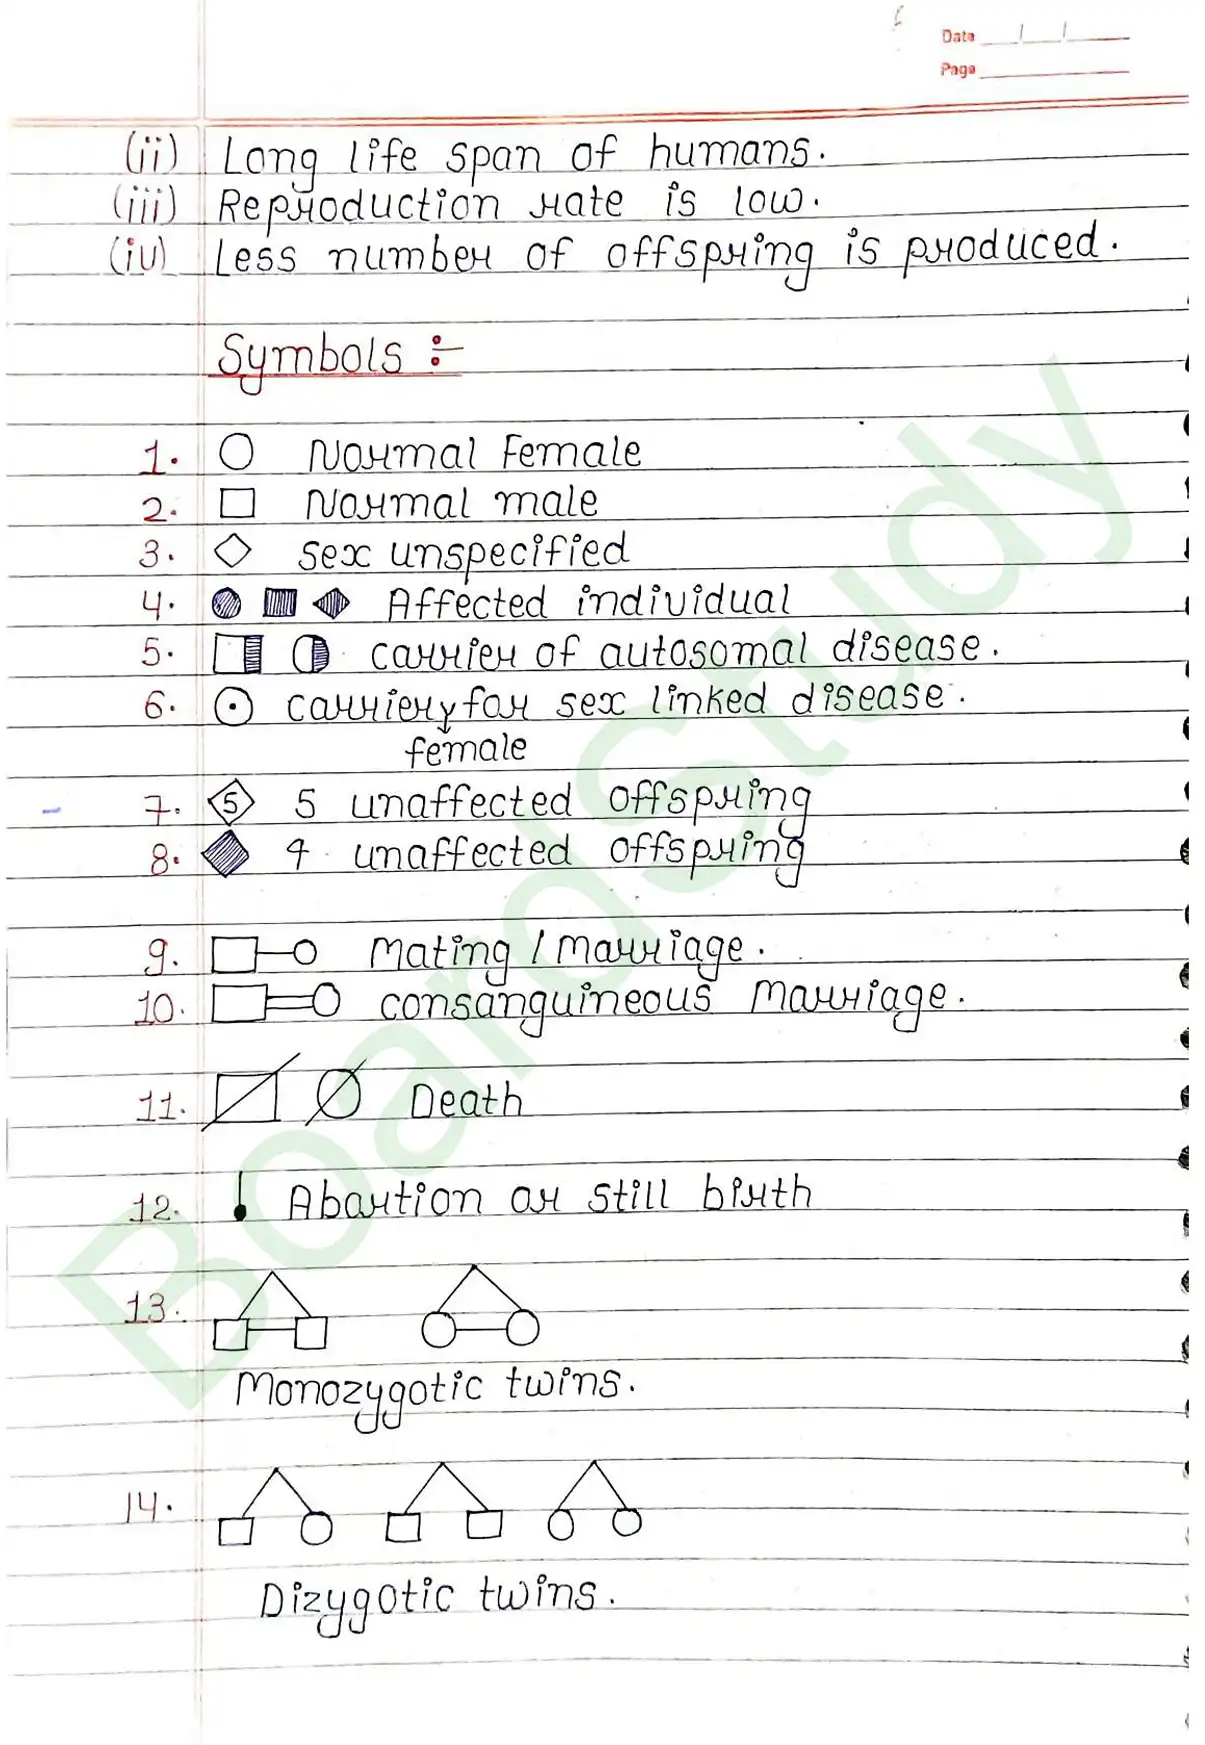 Date / /
Page
(ii) Long life span of humans.
(iii) Reproduction rate is low.
(iv) Less number of offspring is produced.
Symbols :-
1. Normal Female
2. Normal male
3. sex unspecified
4. Affected individual
5. carrier of autosomal disease.
6. carrier for sex linked disease.
female
7. 5 5 unaffected offspring
8. 4 unaffected offspring
9. Mating / Marriage.
10. consanguineous Marriage.
11. Death
12. Abortion or still birth
13.
Monozygotic twins.
14.
Dizygotic twins.
BoardStudy